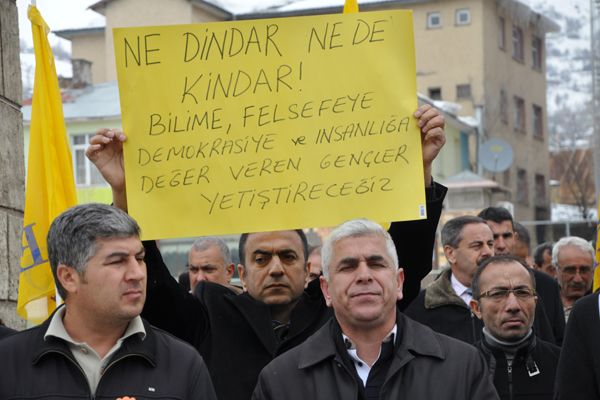 NE DİNDAR NE DE
KİNDAR!
BİLİME, FELSEFEYE
DEMOKRASİYE ve İNSANLIĞA
DEĞER VEREN GENÇLER
YETİŞTİRECEĞİZ